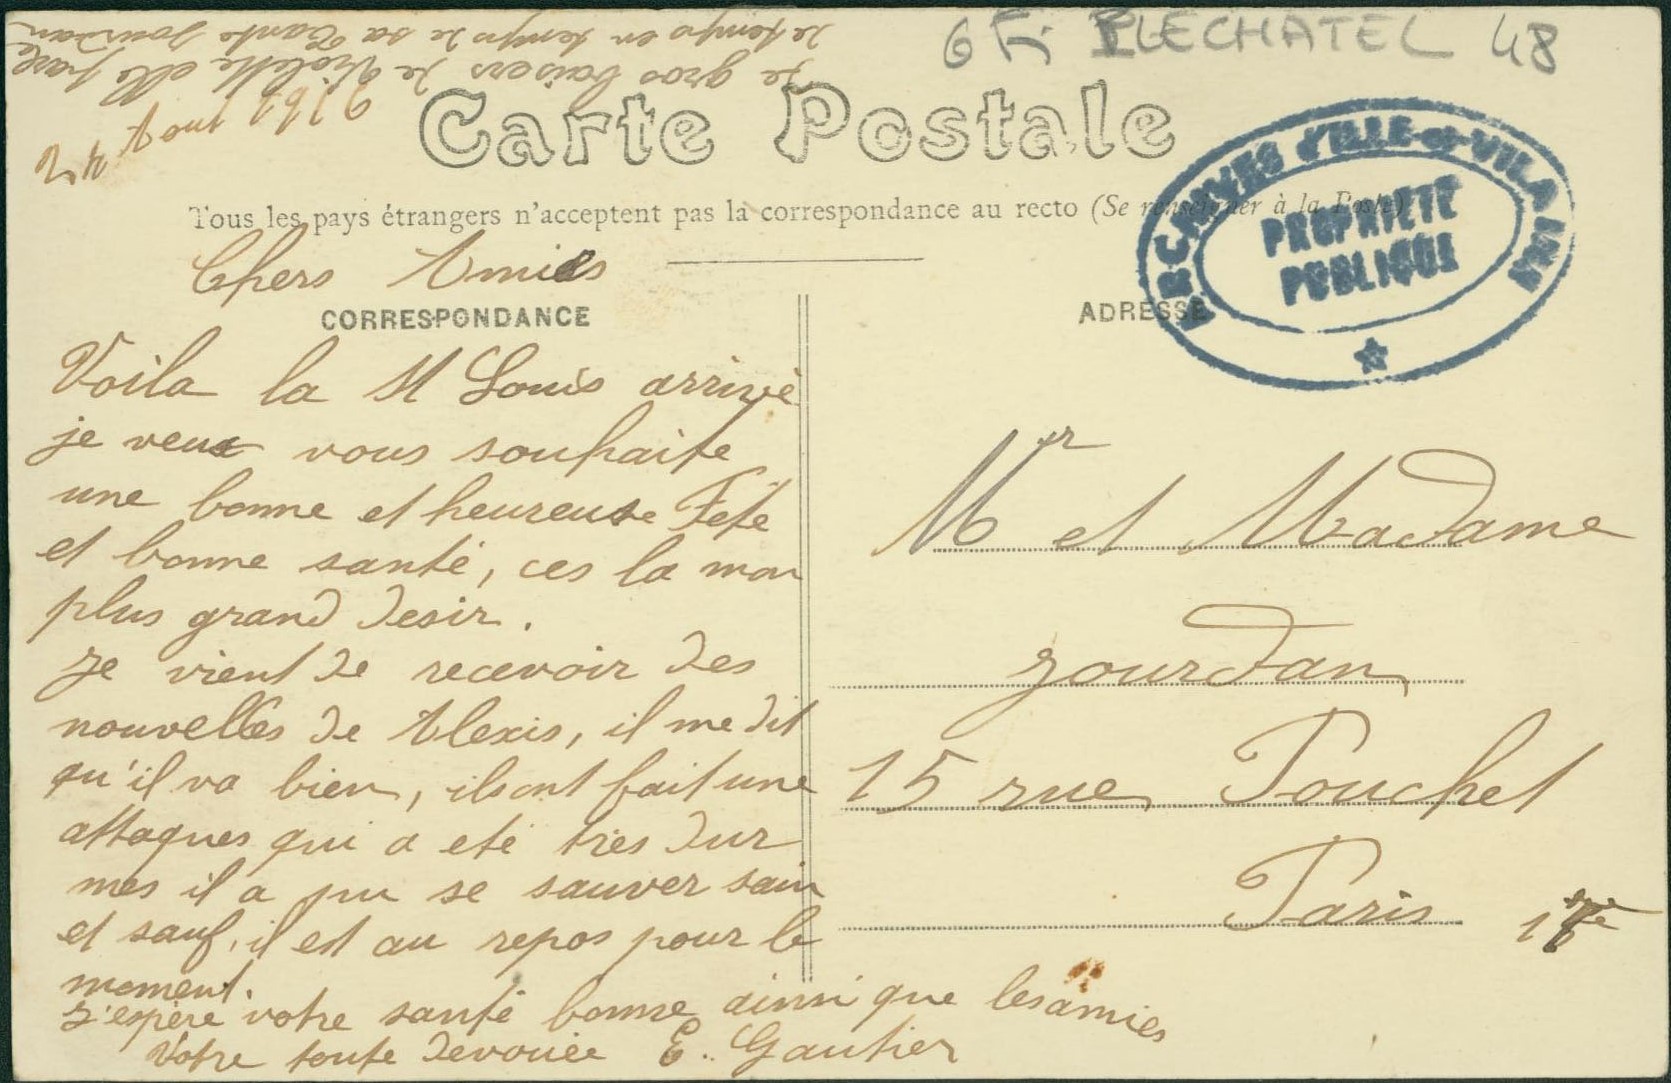 6 Fi PLECHATEL 48
Carte Postale
Tous les pays étrangers n'acceptent pas la correspondance au recto (Se renseigner à la Poste)
ARCHIVES d'ILLE-et-VILAINE
PROPRIETE
PUBLIQUE
CORRESPONDANCE
ADRESSE
24 Aout
Chers Amies
Voila la St Louis arrivé
je veux vous souhaite
une bonne et heureuse Fete
et bonne santé, ces la mon
plus grand desir.
Je vient de recevoir des
nouvelles de Alexis, il me dit
qu'il va bien, ils ont fait une
attaques qui a eté tres dur
mes il a pu se sauver sain
et sauf, il est au repos pour le
moment.
J'espère votre santé bonne ainsi que les amies
Votre toute devouée E. Gautier
de gros baisers de Violette elle parle
de temps en temps de sa Tante Jourdan
Mr et Madame
Jourdan
15 rue Pouchet
Paris